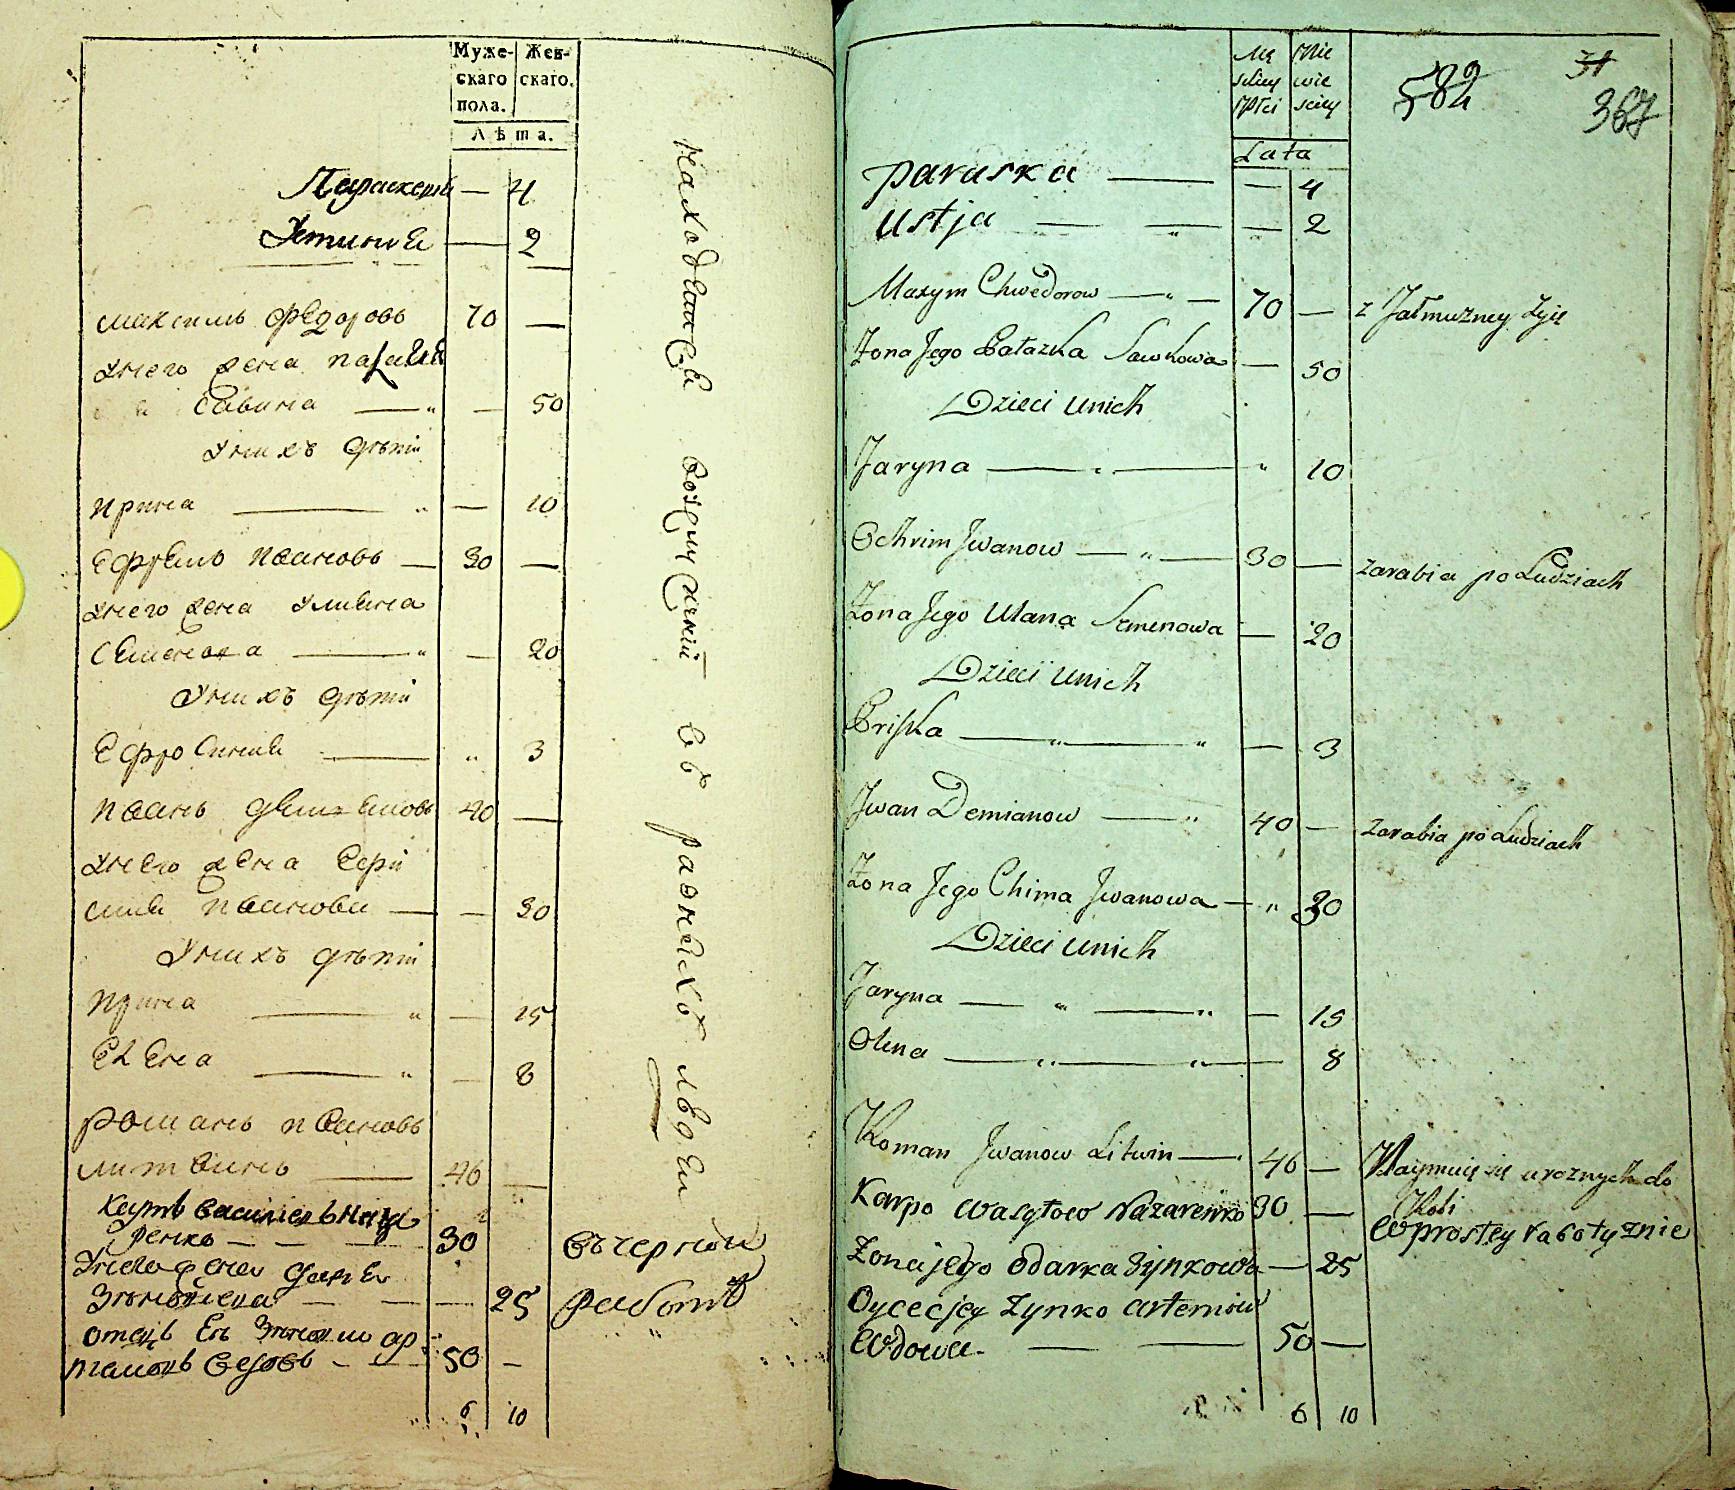 Муже-
скаго
пола.
Жен-
скаго.
Лѣта.
Параскевія — 4
Устинія — 2
Максимъ Федоровъ 70 —
У него жена Палагія
Савина — „ — 50
У нихъ дѣти
Ирина — „ — 10
Ефремъ Ивановъ — 30 —
У него жена Ульяна
Семенова — „ — 20
У нихъ дѣти
Ефросинія — „ 3
Иванъ Демьяновъ 40 —
У него жена Ефи
мія Иванова — — 30
У нихъ дѣти
Ирина — „ — 15
Елена — „ — 8
Романъ Ивановъ
Литвинъ — 46 —
Карпъ Васильевъ Наза
ренко — — — 30
У него жена Дарья
Зѣновіева — — — 25
отецъ Ея Зѣновій Ар
тамонъ вдовъ — — 50 —
6 10
находятся
въ разныхъ людей
въ черной
работѣ
Mę
skiey
Płci
Nie
wie
sciey
Lata
582
31
367
Paraska — — 4
Ustja — „ — 2
Maxym Chwedorow — „ — 70 — z Jałmużney żyie
Żona Jego Pałazka Sawkowa — 50
Dzieci unich
Jaryna — „ — „ 10
Ochrim Jwanow — „ — 30 — zarabia po Ludziach
Żona Jego Ulana Semenowa — 20
Dzieci unich
Priska — „ — „ — 3
Jwan Demianow — „ 40 — zarabia po Ludziach
Żona Jego Chima Jwanowa — „ 30
Dzieci unich
Jaryna — „ — „ — 15
Olena — „ — „ — 8
Roman Jwanow Litwin — 46 — Naymuię się u roznych do
Karpo Wasylow Nazarenko 30 — w prostey rabotyznie
Żona jego Odarka Zynkowa — 25
Oycec jey Zynko Artemiow
Wdowec — — 50 —
6 10